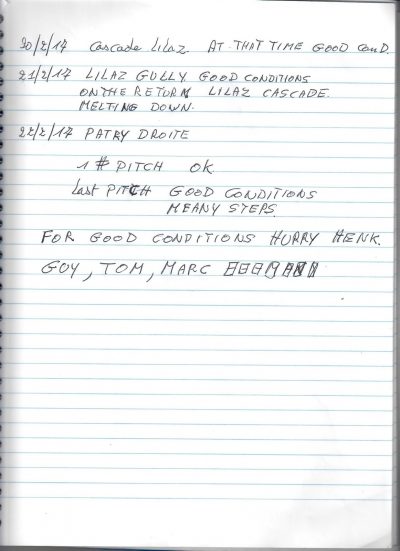 20/2/17 Cascade Lilaz. AT THAT TIME GOOD COND.
21/2/17 LILAZ GULLY GOOD CONDITIONS
ON THE RETURN LILAZ CASCADE.
MELTING DOWN.
22/2/17 PATRY DROITE
1# PITCH OK.
Last PITCH GOOD CONDITIONS
MEANY STEPS.
FOR GOOD CONDITIONS HURRY HENK.
GUY, TOM, MARC